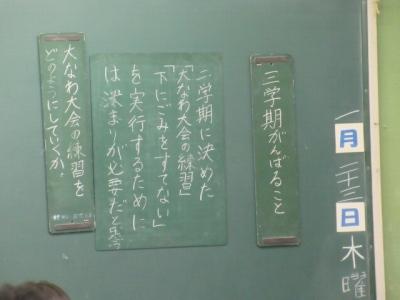 一月二十三日木曜
三学期がんばること
二学期に決めた
「大なわ大会の練習」
「下にごみをすてない」
を実行するために
は深まりが必要だと思う
大なわ大会の練習を
どのようにしていくか。